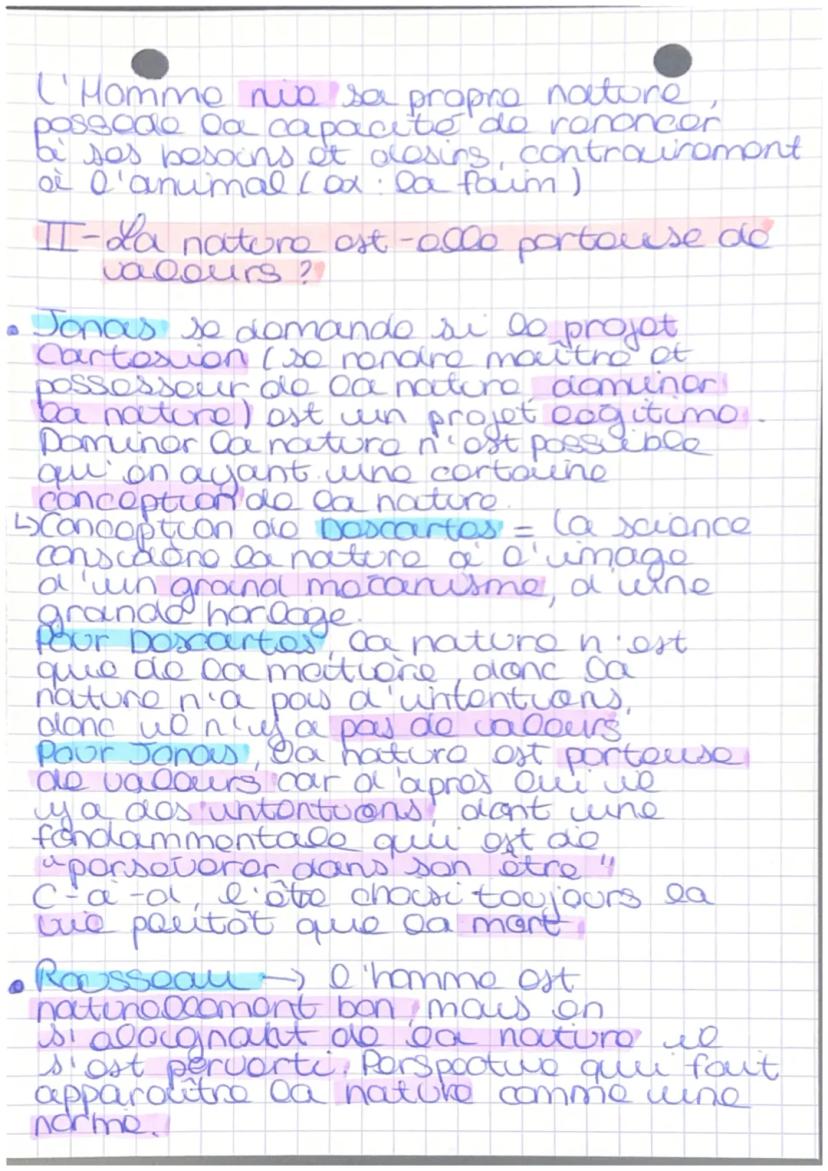 L'Homme nie sa propre nature,
possède la capacité de renoncer
à ses besoins et désirs, contrairement
à l'animal (ex : la faim)
II - La nature est-elle porteuse de
valeurs ?
• Jonas se demande si le projet
Cartésien (se rendre maître et
possesseur de la nature dominer
la nature) est un projet légitime.
Dominer la nature n'est possible
qu'en ayant une certaine
conception de la nature.
↳ Conception de Descartes = la science
considère la nature à l'image
d'un grand mécanisme, d'une
grande horloge.
Pour Descartes, la nature n'est
que de la matière, donc la
nature n'a pas d'intentions,
donc il n'y a pas de valeurs.
Pour Jonas, la nature est porteuse
de valeurs car d'après lui il
y a des intentions, dont une
fondammentale qui est de
"persévérer dans son être"
C-à-d, l'être choisi toujours la
vie plutôt que la mort.
• Rousseau → l'homme est
naturellement bon, mais en
s'éloignant de la nature il
s'est perverti. Perspective qui fait
apparaître la nature comme une
norme.